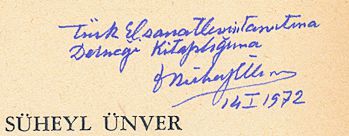 Türk El sanatlerini tanıtma
Derneği Kitaplığına
A Süheyl Ünver
14 I 1972
SÜHEYL ÜNVER